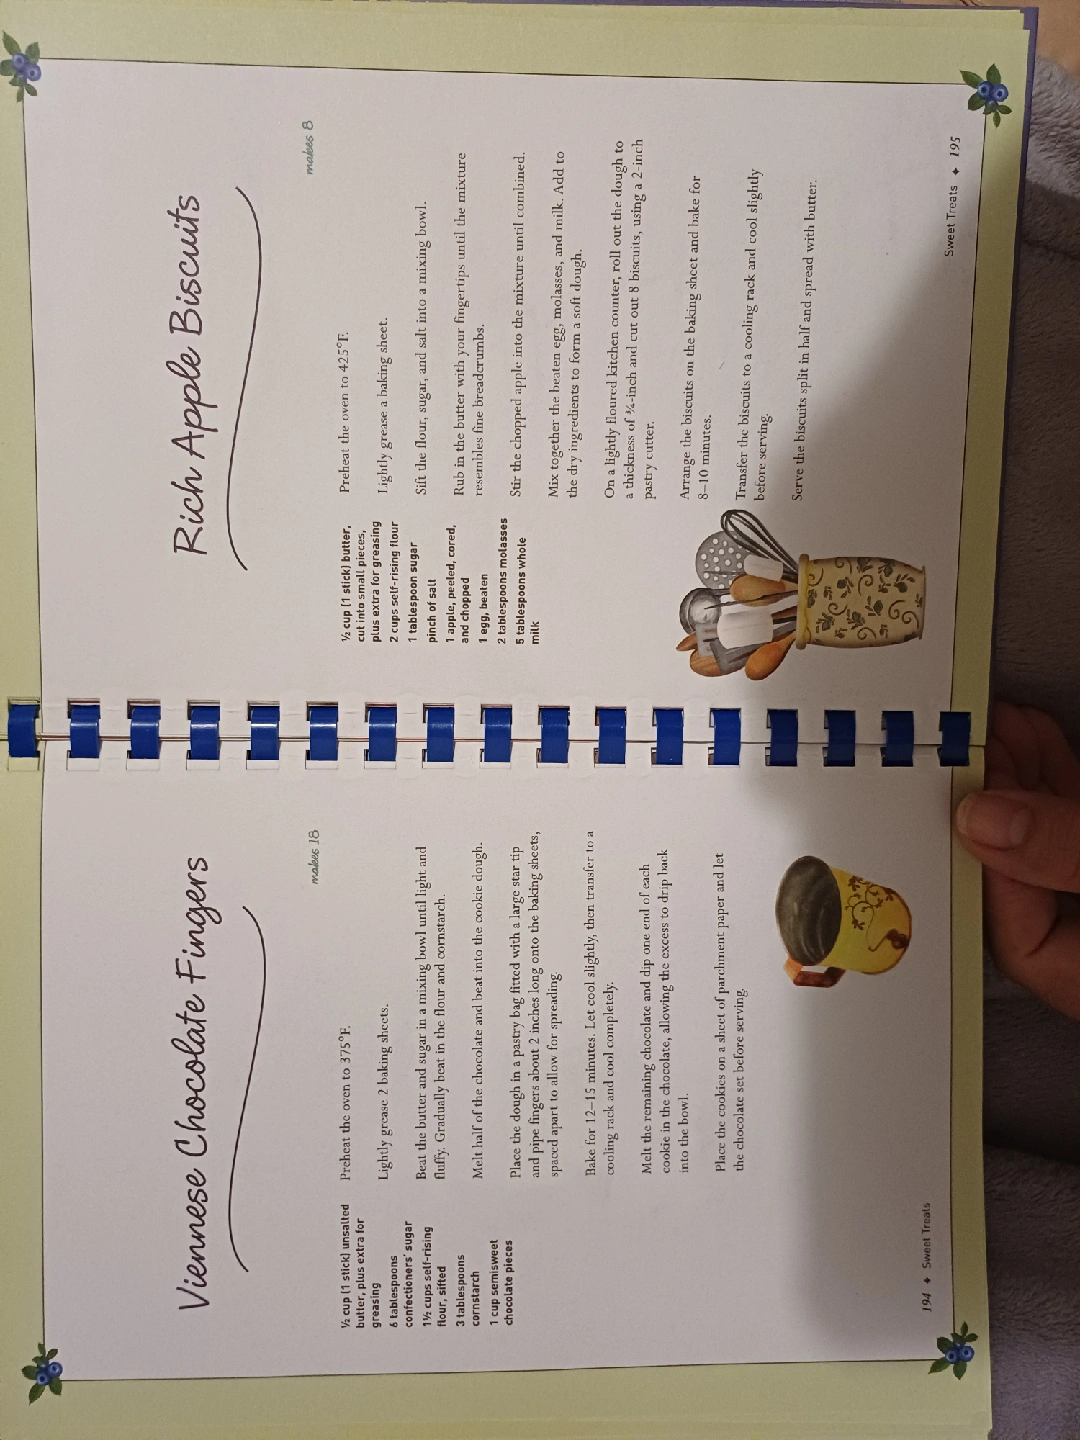 Viennese Chocolate Fingers
makes 18
½ cup (1 stick) unsalted
butter, plus extra for
greasing
6 tablespoons
confectioners' sugar
1½ cups self-rising
flour, sifted
3 tablespoons
cornstarch
1 cup semisweet
chocolate pieces
Preheat the oven to 375°F.
Lightly grease 2 baking sheets.
Beat the butter and sugar in a mixing bowl until light and
fluffy. Gradually beat in the flour and cornstarch.
Melt half of the chocolate and beat into the cookie dough.
Place the dough in a pastry bag fitted with a large star tip
and pipe fingers about 2 inches long onto the baking sheets,
spaced apart to allow for spreading
Bake for 12–15 minutes. Let cool slightly, then transfer to a
cooling rack and cool completely.
Melt the remaining chocolate and dip one end of each
cookie in the chocolate, allowing the excess to drip back
into the bowl.
Place the cookies on a sheet of parchment paper and let
the chocolate set before serving.
194 ✦ Sweet Treats
Rich Apple Biscuits
makes 8
½ cup (1 stick) butter,
cut into small pieces,
plus extra for greasing
2 cups self-rising flour
1 tablespoon sugar
pinch of salt
1 apple, peeled, cored,
and chopped
1 egg, beaten
2 tablespoons molasses
5 tablespoons whole
milk
Preheat the oven to 425°F.
Lightly grease a baking sheet.
Sift the flour, sugar, and salt into a mixing bowl.
Rub in the butter with your fingertips until the mixture
resembles fine breadcrumbs.
Stir the chopped apple into the mixture until combined.
Mix together the beaten egg, molasses, and milk. Add to
the dry ingredients to form a soft dough.
On a lightly floured kitchen counter, roll out the dough to
a thickness of ¾-inch and cut out 8 biscuits, using a 2-inch
pastry cutter.
Arrange the biscuits on the baking sheet and bake for
8–10 minutes.
Transfer the biscuits to a cooling rack and cool slightly
before serving.
Serve the biscuits split in half and spread with butter.
Sweet Treats ✦ 195